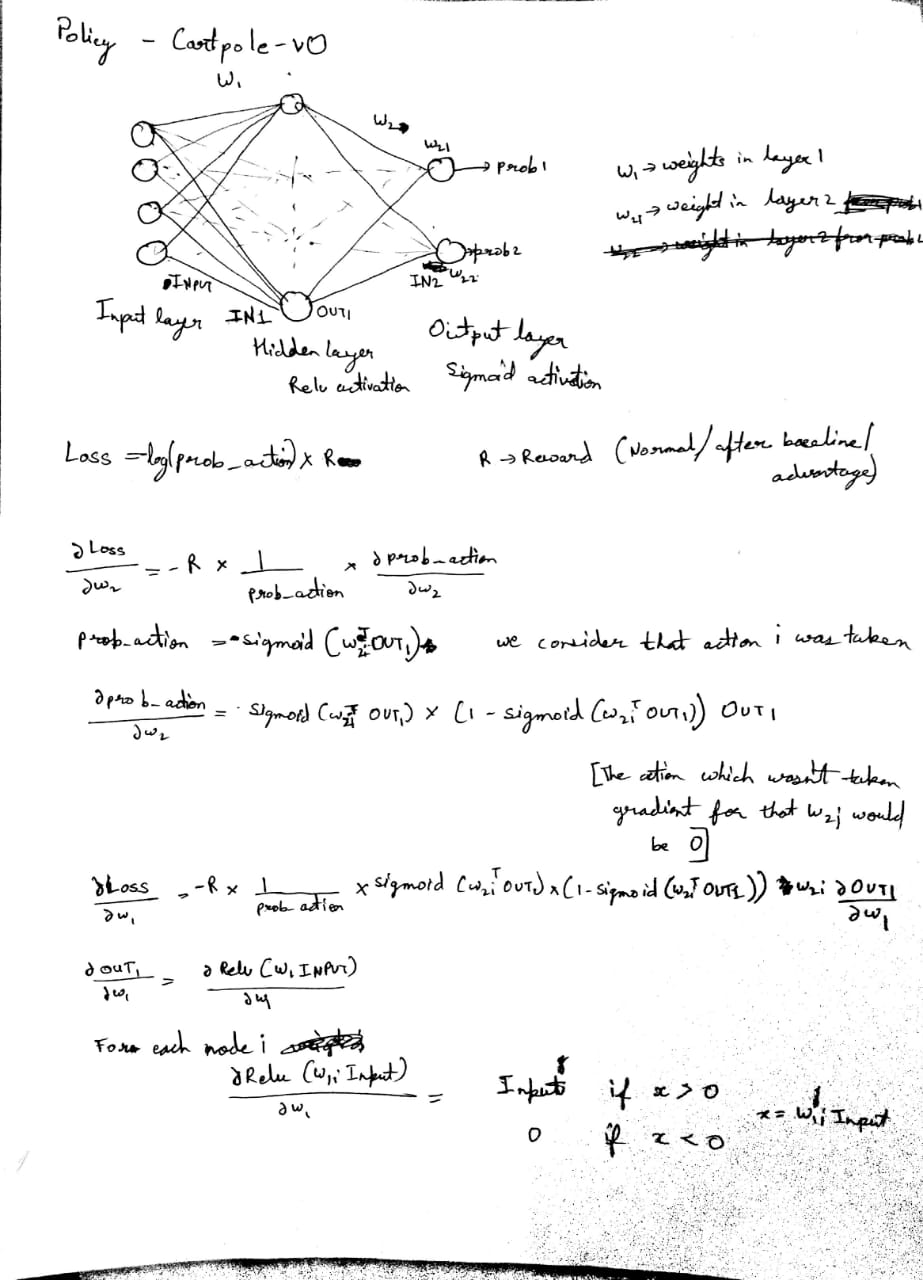 Policy - Cartpole-v0
W₁
W₂
W₂₁
→ prob1
w₁ → weights in layer 1
w₂ᵢ → weight in layer 2
prob2
IN2 W₂₂
INPUT
Input layer IN1 OUT1
Hidden layer
Relu activation
Oitput layer
Sigmoid activation
Loss = -log(prob_action) × R
R → Reward (Normal/after baseline/
advantage)
∂Loss/∂w₂ = -R × 1/prob_action × ∂prob_action/∂w₂
prob_action = sigmoid (w₂ᵢᵀ OUT₁) we consider that action i was taken
∂prob_action/∂w₂ = sigmoid (w₂ᵢᵀ OUT₁) × (1 - sigmoid (w₂ᵢᵀ OUT₁)) OUT1
[The ation which wasn't taken
gradient for that W₂j would
be 0]
∂Loss/∂w₁ = -R × 1/prob action × sigmoid (w₂ᵢᵀ OUT₁) × (1 - sigmoid (w₂ᵢᵀ OUT1)) w₂ᵢ ∂OUT1/∂w₁
∂OUT₁/∂w₁ = ∂ Relu (W₁ INPUT)/∂w₁
For each node i
∂Relu (W₁ᵢ Input)/∂w₁ = Input if x > 0
x = W₁ᵢ Input
0 if x < 0